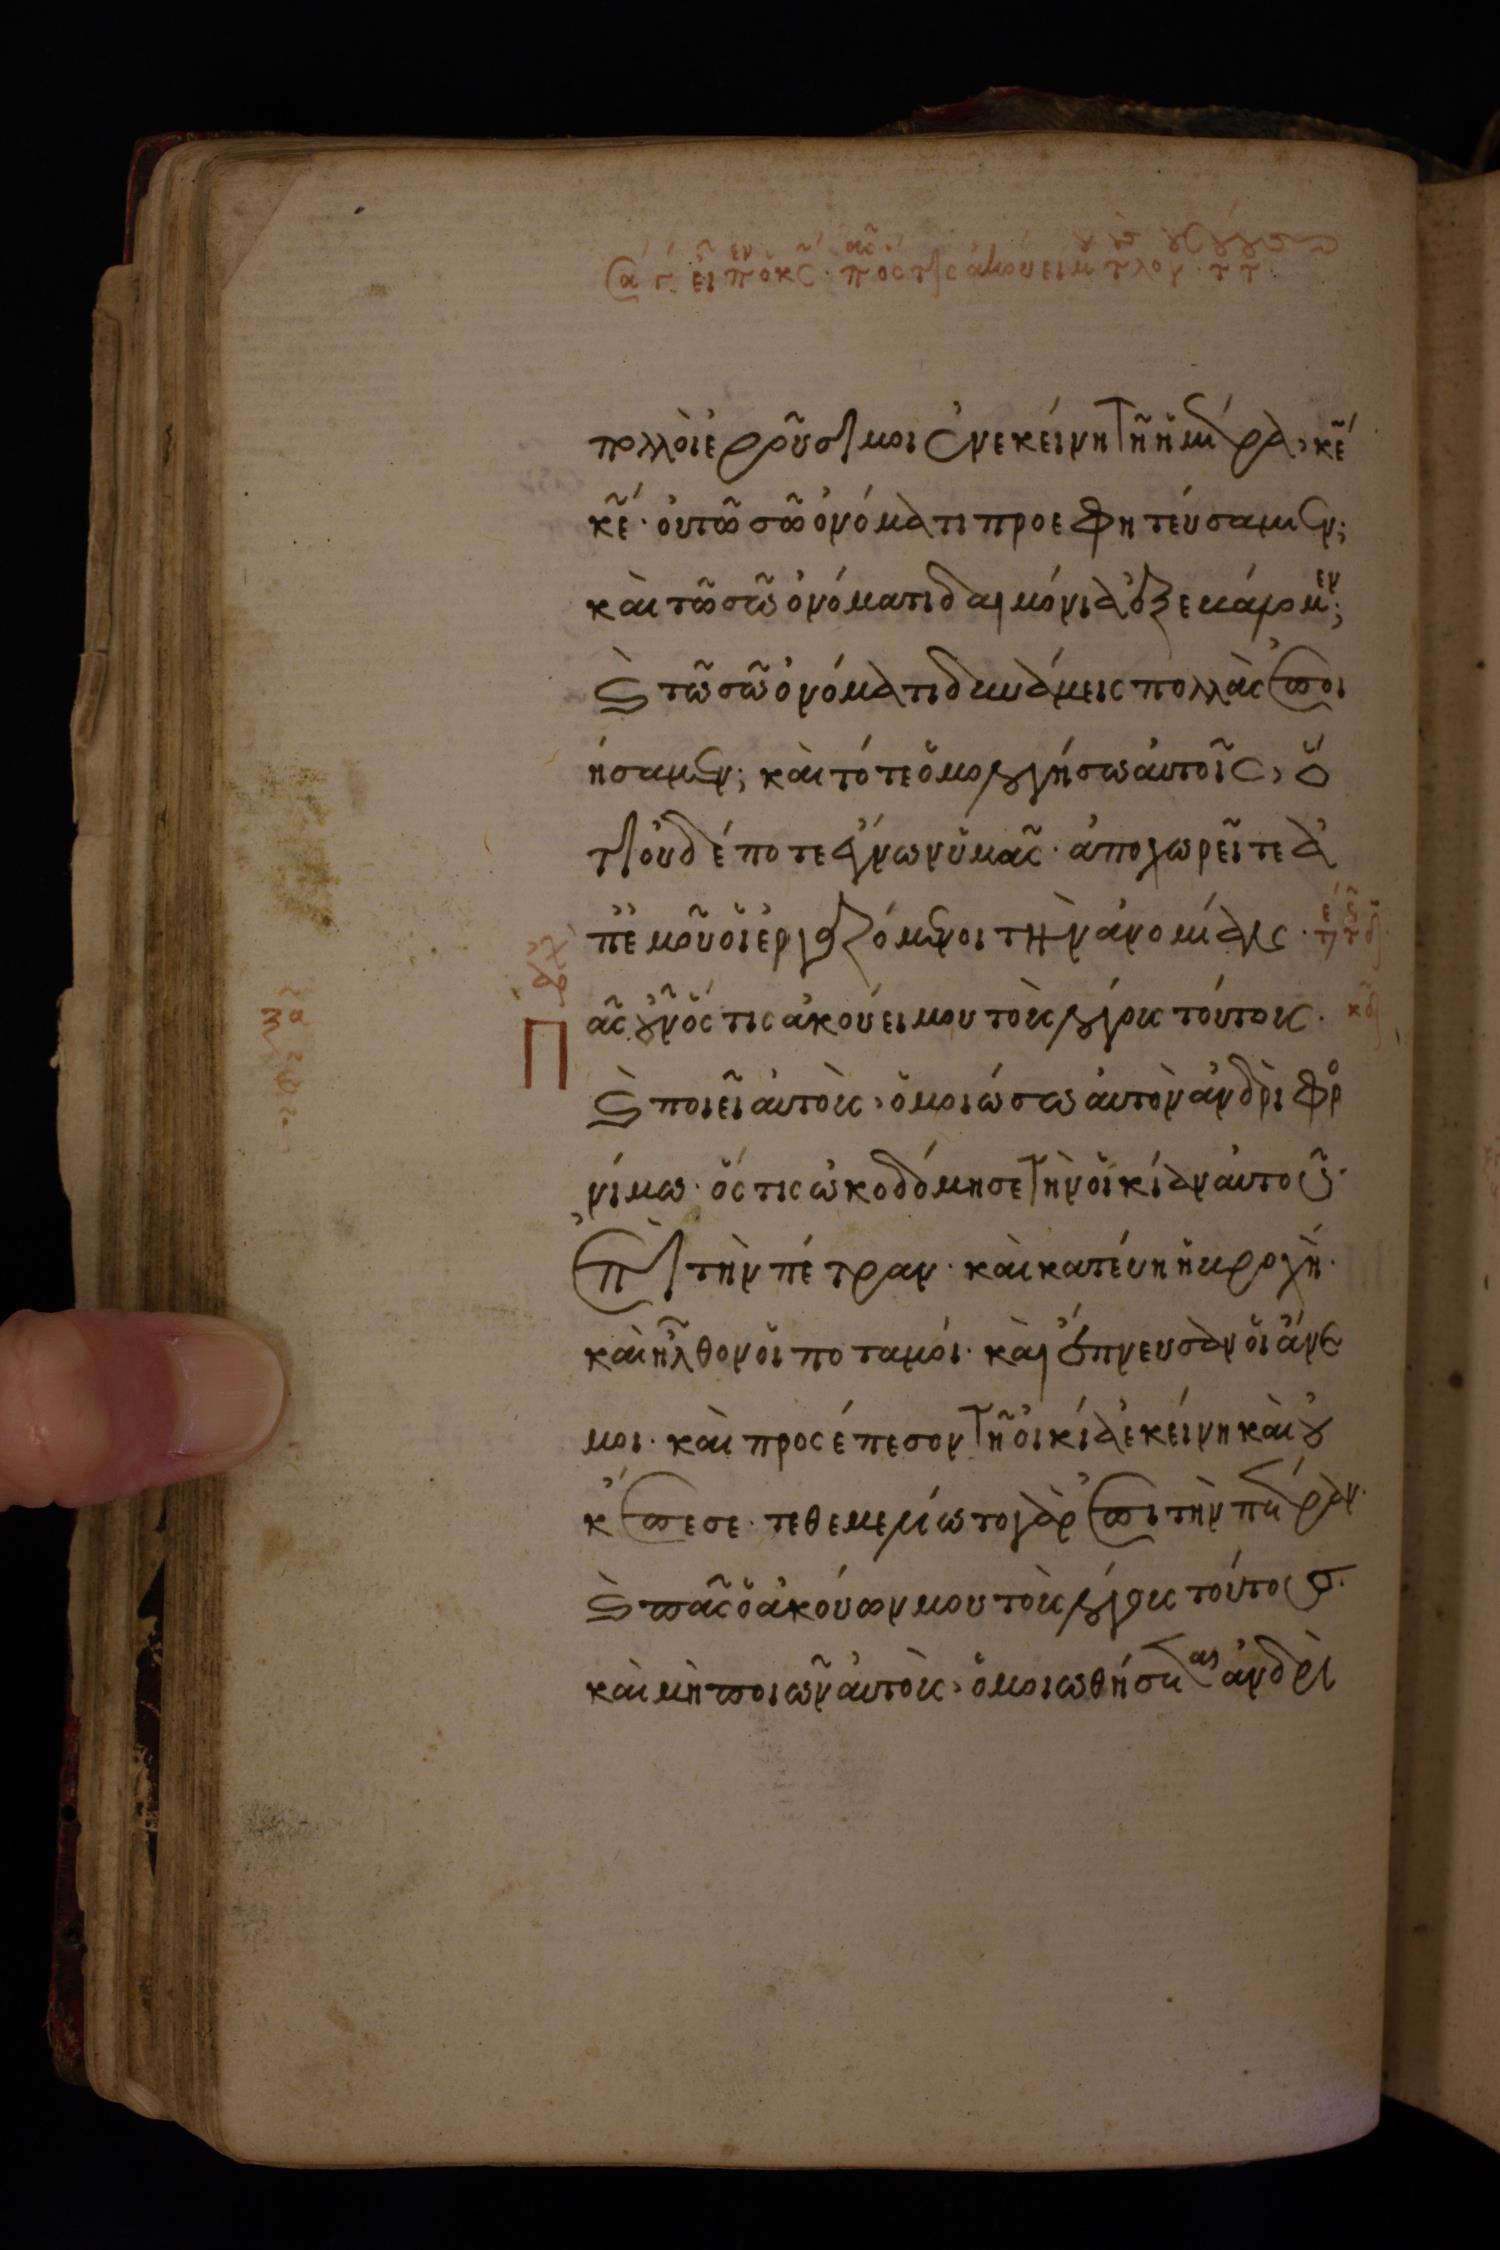 πολλοὶ ἐροῦσί μοι ἐν ἐκείνη τῆ ἡμέρα, κε̃
κε̃· οὐ τῶ σῶ ὀνόματι προεφητεύσαμεν;
καὶ τῶ σῶ ὀνόματι δαιμόνια ἐξεβάλομεν;
καὶ τῶ σῶ ὀνόματι δυνάμεις πολλὰς ἐποι
ήσαμεν; καὶ τότε ὁμολογήσω αὐτοῖς, ὅ
τι οὐδέποτε ἔγνων ὑμᾶς· ἀποχωρεῖτε ἀ
π' ἐμοῦ οἱ ἐργαζόμενοι τὴν ἀνομίαν·
Πᾶς οὖν ὅστις ἀκούει μου τοὺς λόγους τούτους·
καὶ ποιεῖ αὐτοὺς, ὁμοιώσω αὐτὸν ἀνδρὶ φρο
νίμω· ὅστις ὠκοδόμησε τὴν οἰκίαν αὐτοῦ·
ἐπὶ τὴν πέτραν· καὶ κατέβη ἡ βροχὴ·
καὶ ἦλθον οἱ ποταμοί· καὶ ἔπνευσαν οἱ ἄνε
μοι· καὶ προσέπεσον τῆ οἰκία ἐκείνη καὶ οὐ
κ ἔπεσε· τεθεμελίωτο γὰρ ἐπὶ τὴν πέτραν·
καὶ πᾶς ὁ ἀκούων μου τοὺς λόγους τούτους·
καὶ μὴ ποιῶν αὐτοὺς, ὁμοιωθήσεται ἀνδρὶ